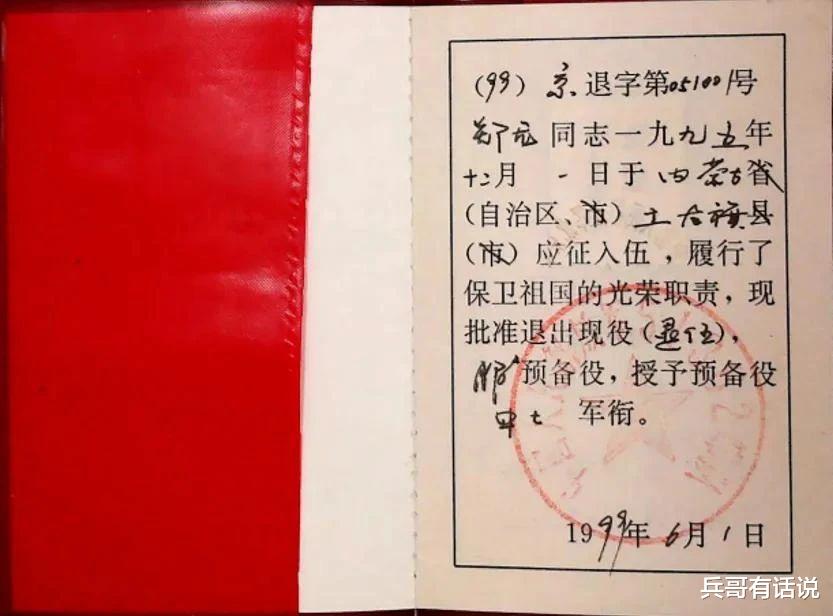 (99) 京退字第051001号
郑龙同志一九九五年
十二月 一日于内蒙古省
(自治区、市) 土右旗县
(市) 应征入伍,履行了
保卫祖国的光荣职责,现
批准退出现役(退伍),
服预备役,授予预备役
中士 军衔。
1999年6月1日
兵哥有话说